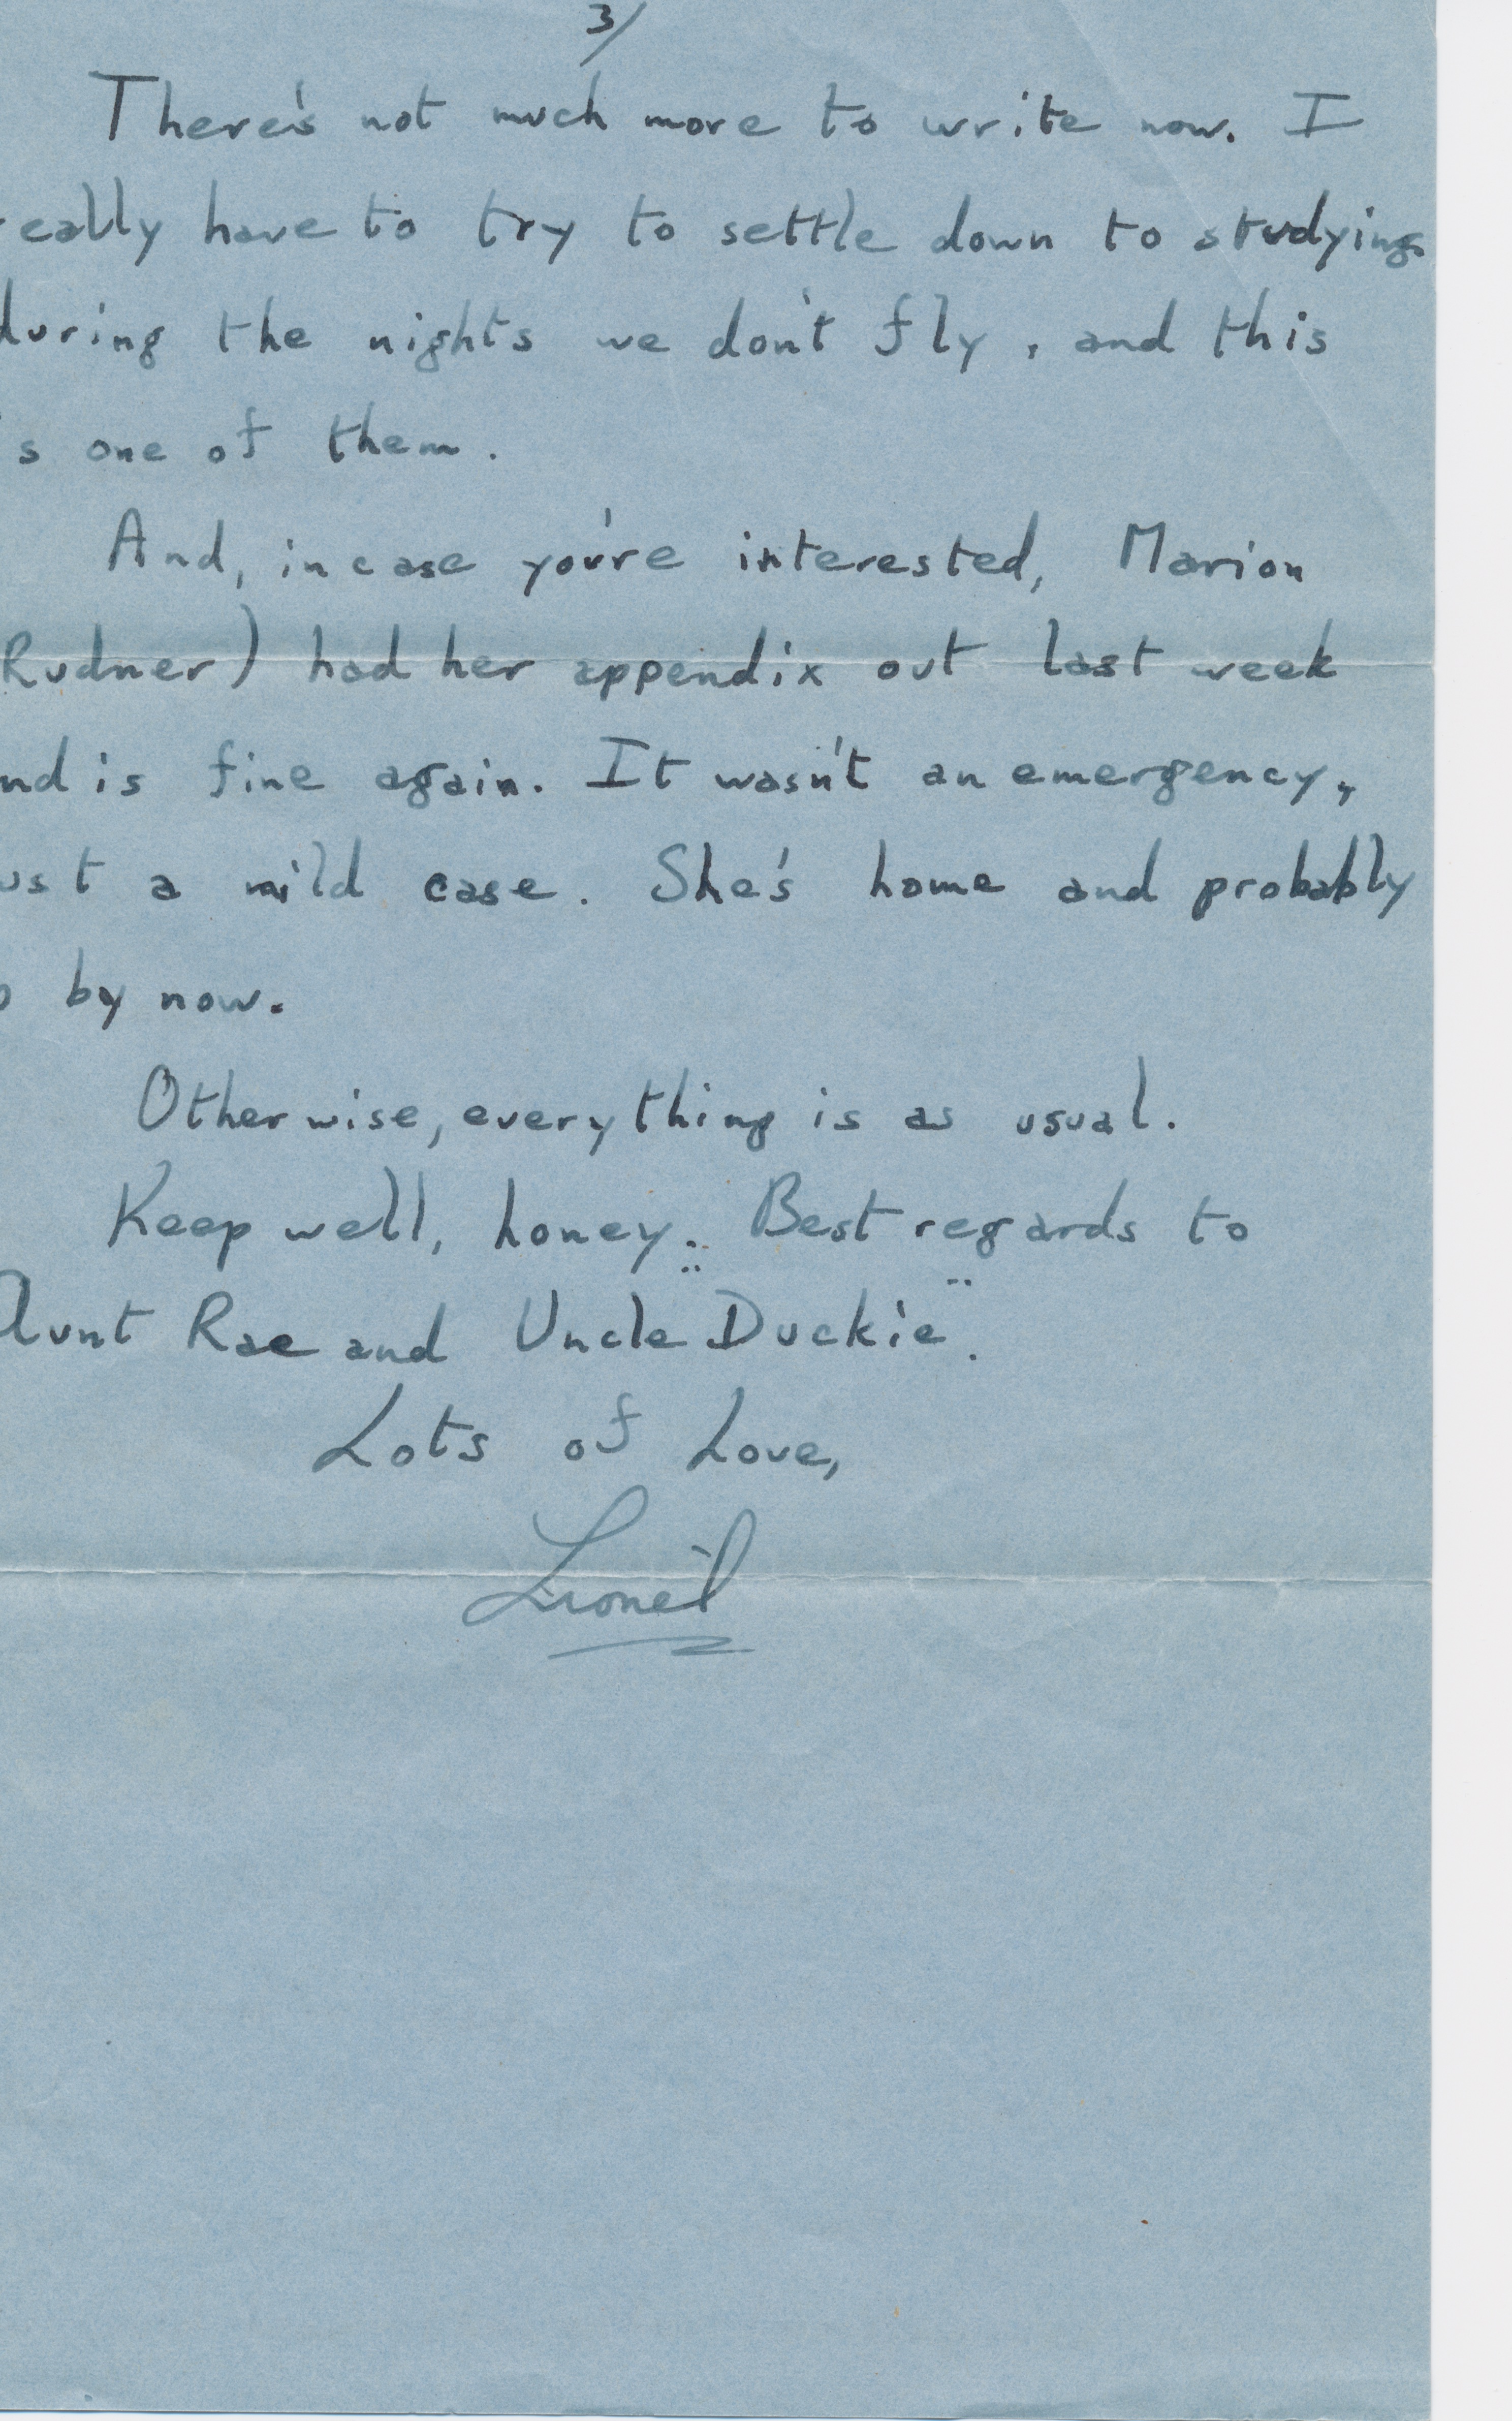 3/
There's not much more to write now. I
really have to try to settle down to studying
during the nights we don't fly, and this
is one of them.
And, in case you're interested, Marion
Rudner) had her appendix out last week
nd is fine again. It wasn't an emergency,
ust a mild case. She's home and probably
by now.
Otherwise, everything is as usual.
Keep well, honey. Best regards to
Aunt Rae and Uncle "Duckie".
Lots of Love,
Lionel